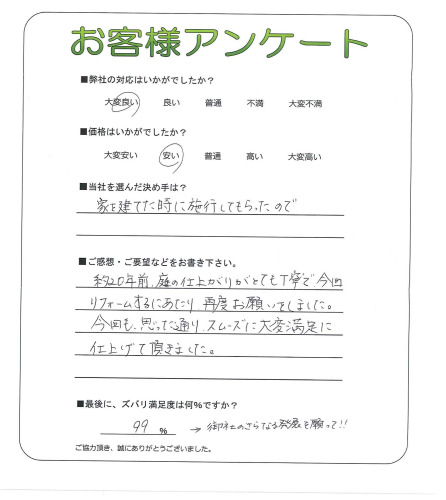 お客様アンケート
■弊社の対応はいかがでしたか?
大変良い 良い 普通 不満 大変不満
■価格はいかがでしたか?
大変安い 安い 普通 高い 大変高い
■当社を選んだ決め手は?
家を建てた時に施行してもらったので
■ご感想・ご要望などをお書き下さい。
約20年前、庭の仕上がりがとても丁寧で今回
リフォームするにあたり、再度お願いしました。
今回も、思った通り、スムーズに大変満足に
仕上げて頂きました。
■最後に、ズバリ満足度は何%ですか?
99 % → 御社のさらなる発展を願って!!
ご協力頂き、誠にありがとうございました。